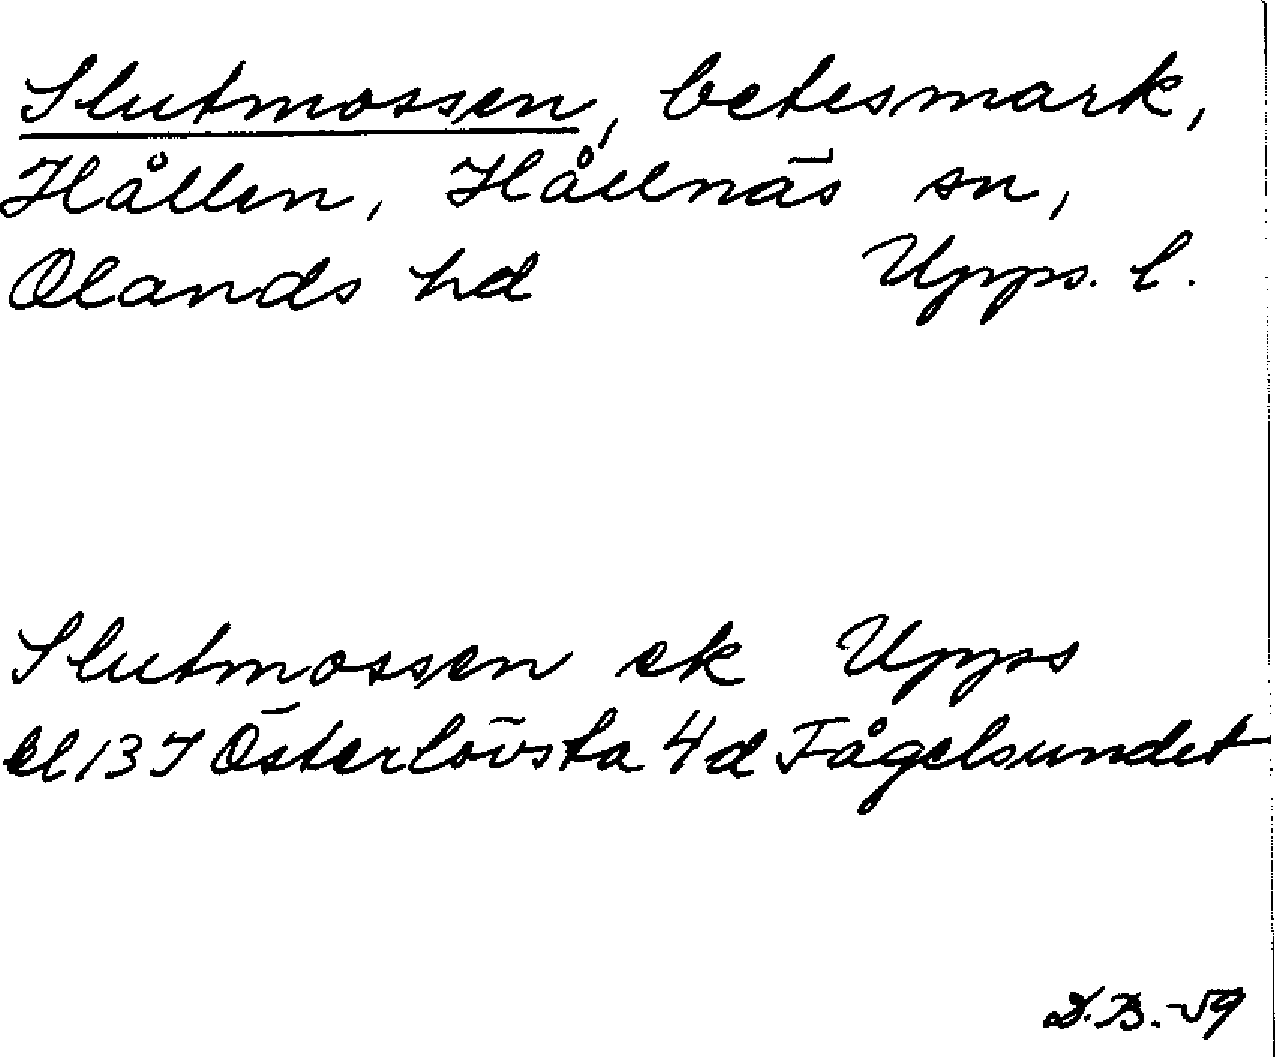 Slutmossen, betesmark,
Hållen, Hållnäs sn,
Olands hd Upps. l.
Slutmossen ek Upps
bl 13 I Österlövsta 4d Fågelsundet
D.B.-59